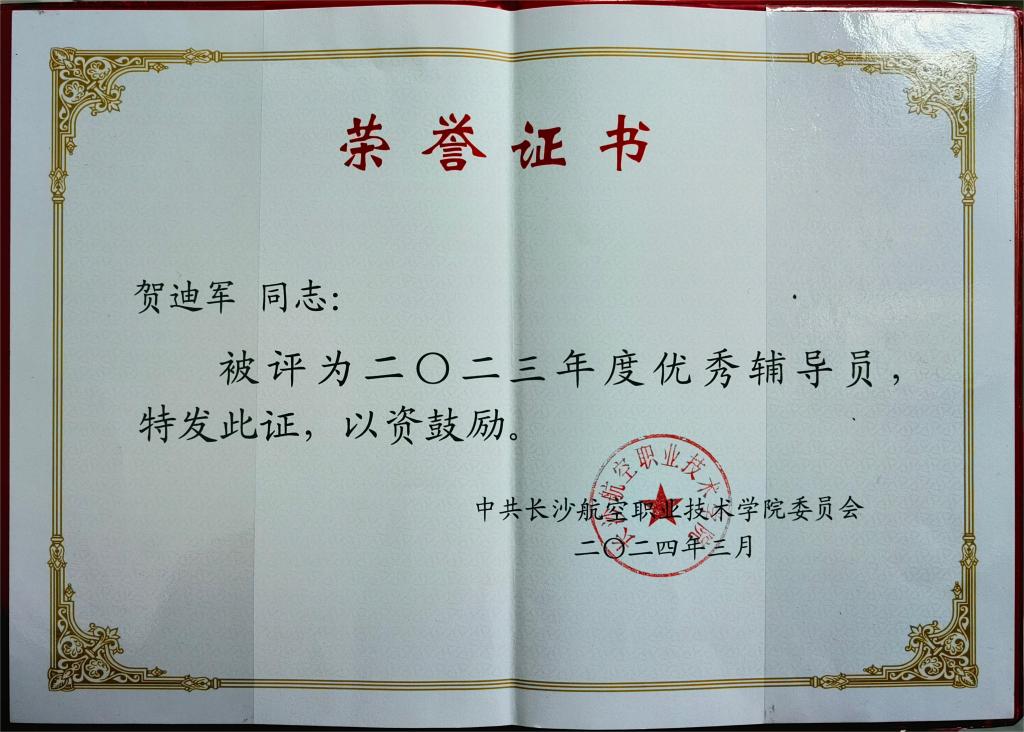 荣誉证书
贺迪军 同志：
被评为二〇二三年度优秀辅导员，
特发此证，以资鼓励。
中共长沙航空职业技术学院委员会
二〇二四年三月
长沙航空职业技术学院